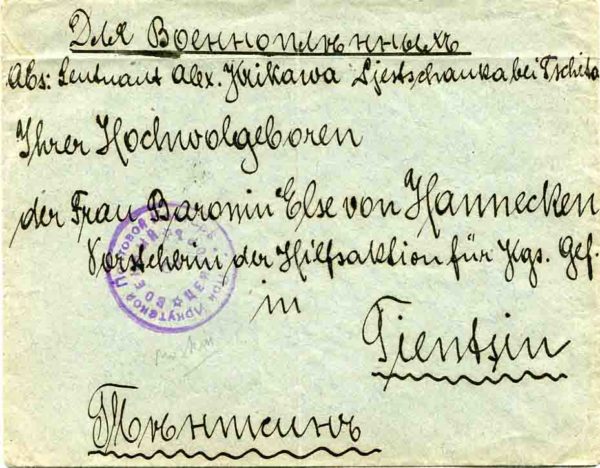 Для Военноплѣнныхъ
Abs: Leutnant Alex. Krikawa Pjestschanka bei Tschita
Ihrer Hochwolgeboren
der Frau Baronin Else von Hannecken
Vorsteherin der Hilfsaktion für Kgs. Gef.
in
Tientsin
Тѣнтсинъ